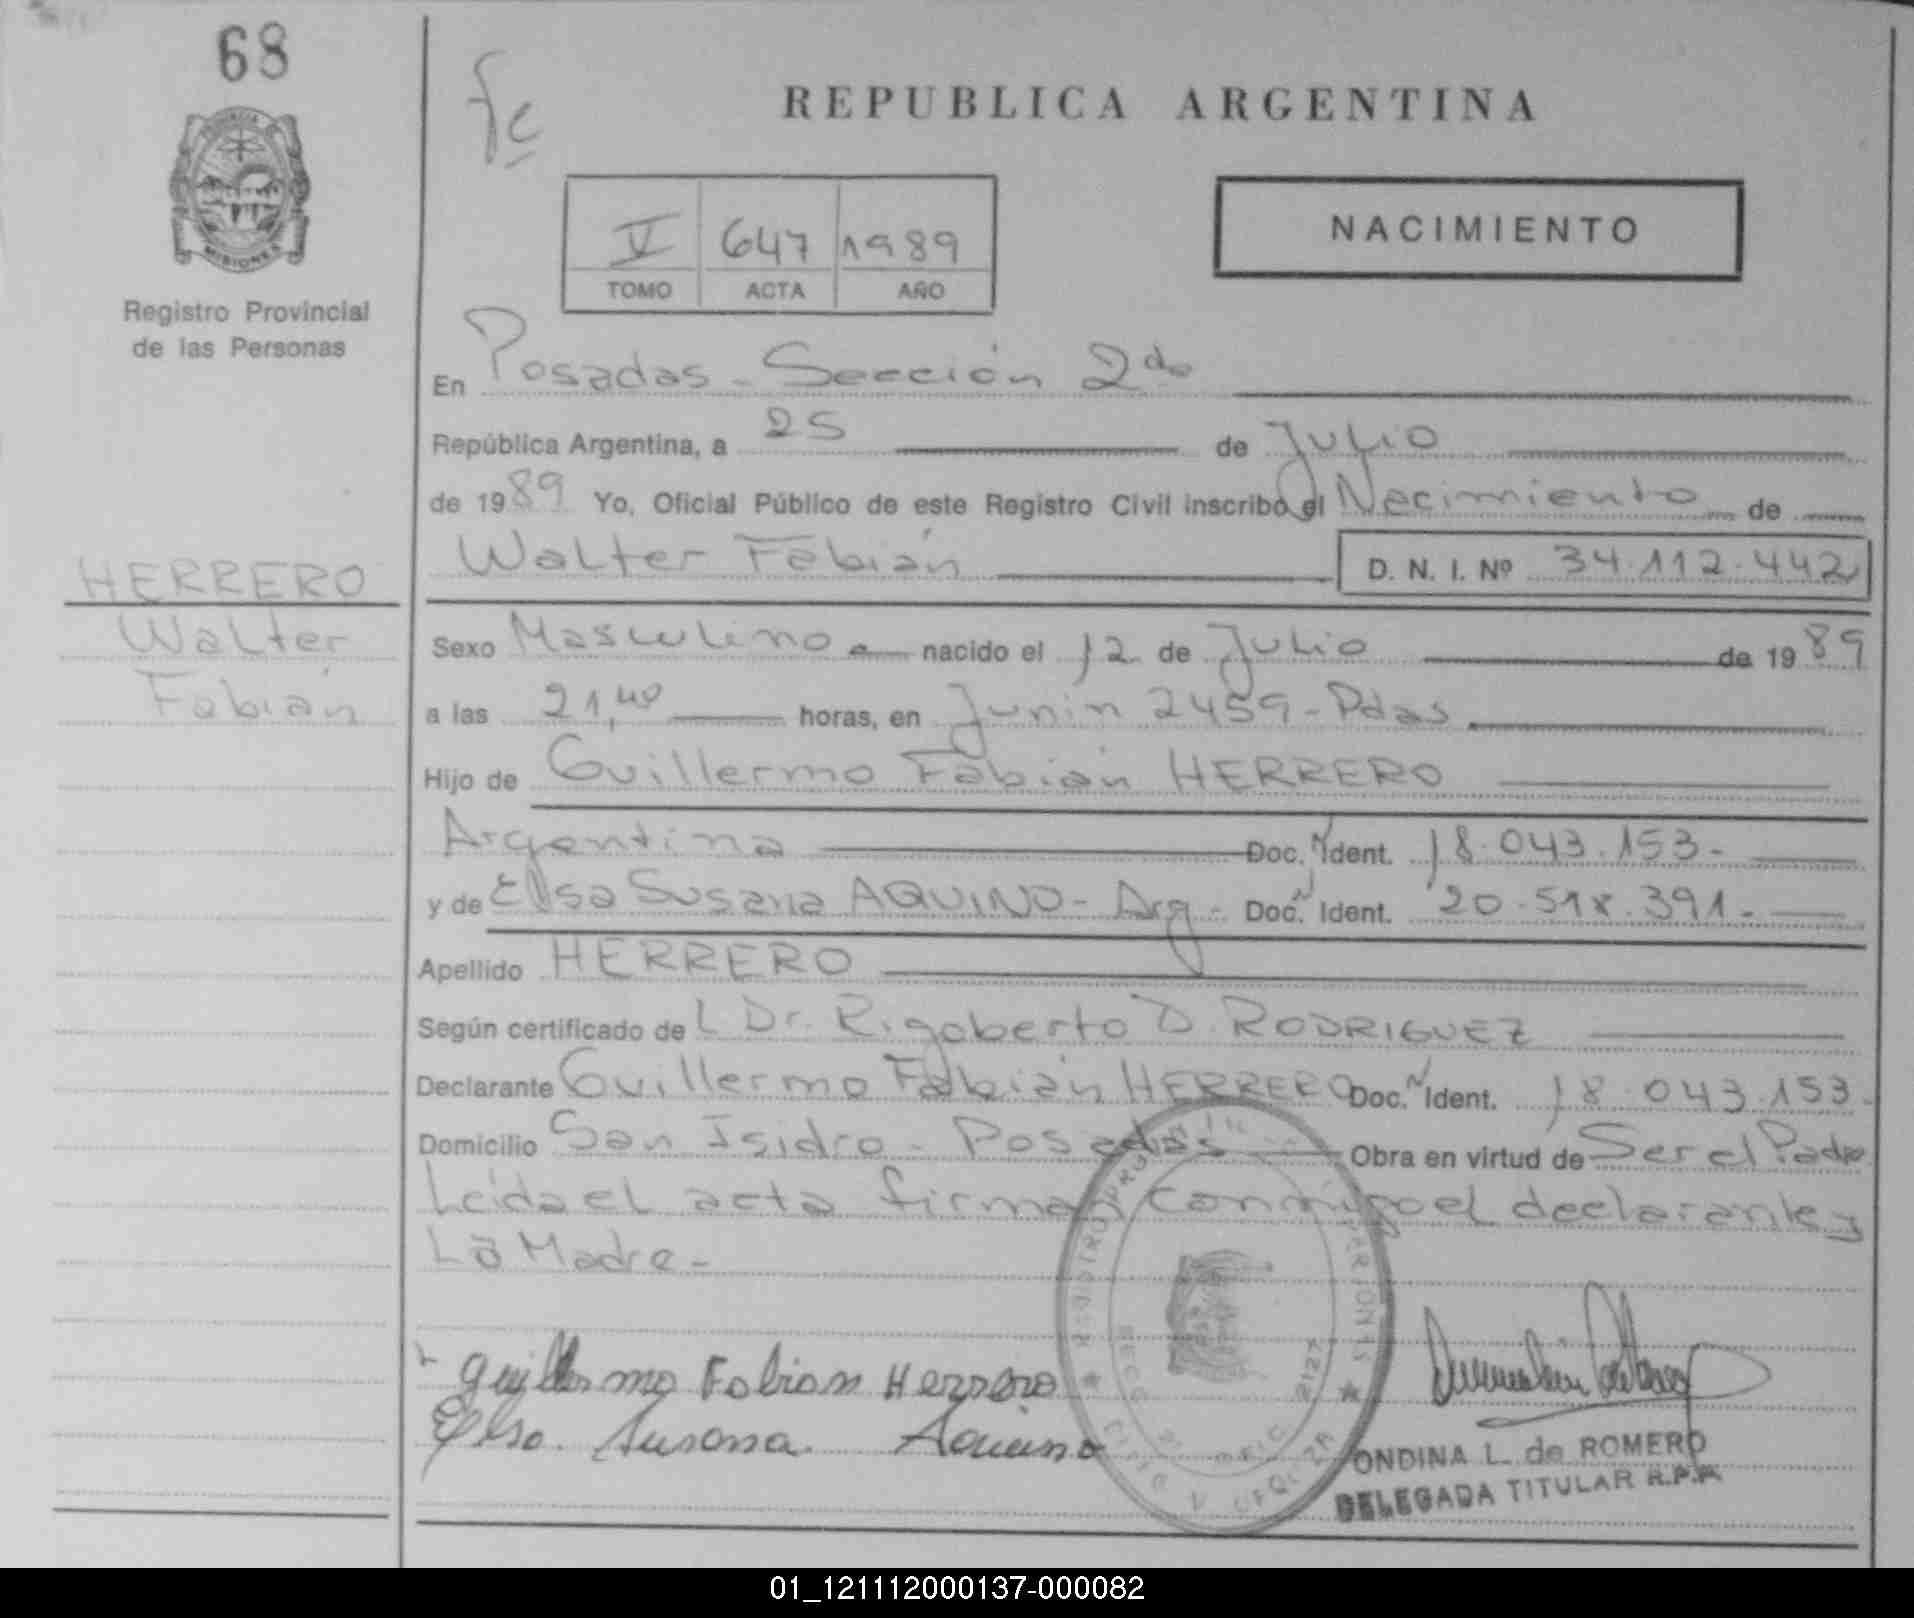 68
PROVINCIA DE
MISIONES
Registro Provincial
de las Personas
HERRERO
Walter
Fabián
REPUBLICA ARGENTINA
V 647 1989
TOMO ACTA AÑO
NACIMIENTO
En Posadas - Sección 2da
República Argentina, a 25 de Julio
de 1989 Yo, Oficial Público de este Registro Civil inscribo el Nacimiento de
Walter Fabián D. N. I. Nº 34.112.442
Sexo Masculino nacido el 12 de Julio de 1989
a las 21,40 horas, en Junin 2459 - Pdas
Hijo de Guillermo Fabián HERRERO
Argentina Doc. Ident. 18.043.153.-
y de Elisa Susana AQUINO - Arg - Doc. Ident. 20.518.391.-
Apellido HERRERO
Según certificado del Dr. Rigoberto D. RODRIGUEZ
Declarante Guillermo Fabián HERRERO Doc. Ident. 18.043.153.
Domicilio San Isidro - Posadas Obra en virtud de Ser el Padre
Leida el acta firman conmigo el declarante y
La Madre -
Guillermo Fabian Herrero
Elsa Susana Aquino
ONDINA L. de ROMERO
DELEGADA TITULAR R.P.P.
01_121112000137-000082